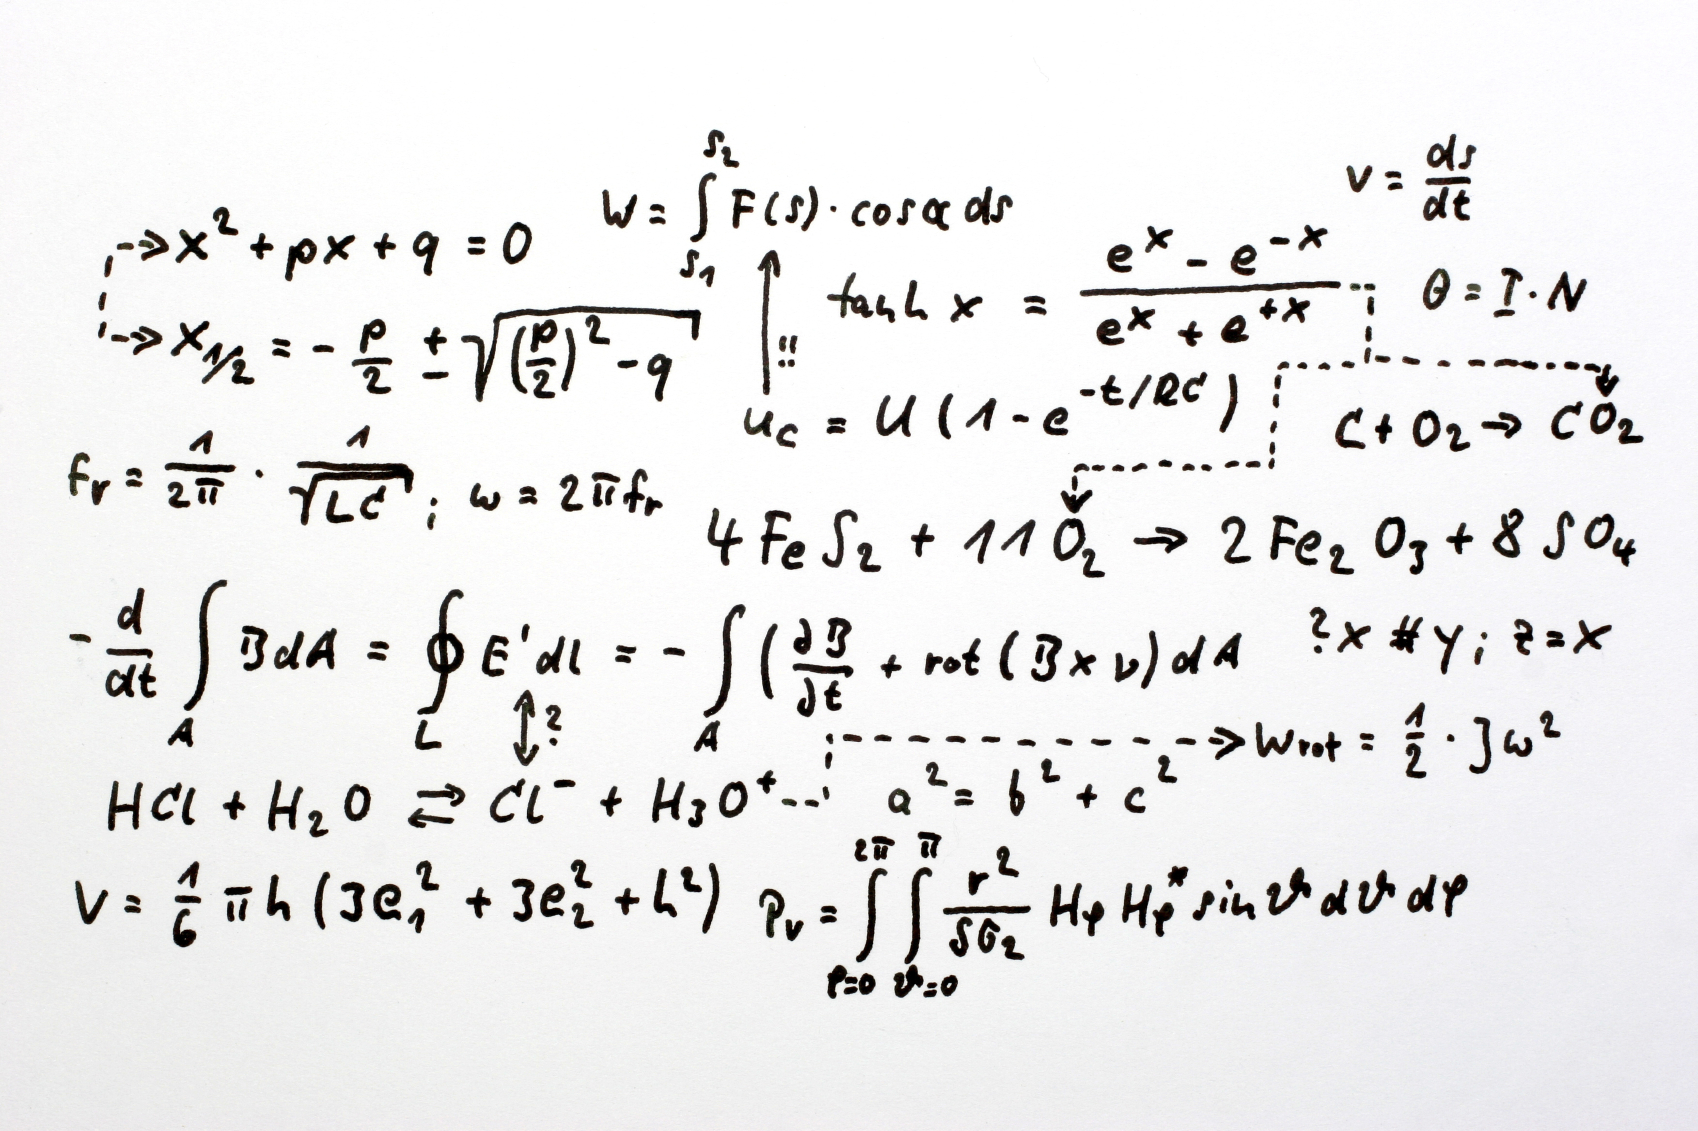 v = ds/dt
W = ∫_{s1}^{s2} F(s) · cos α ds
x² + px + q = 0
tanh x = (e^x - e^{-x}) / (e^x + e^{+x})
Θ = I · N
x_{1/2} = - p/2 ± √((p/2)² - q)
!!
u_C = U (1 - e^{-t/RC})
C + O₂ → CO₂
f_r = 1/2π · 1/√LC ; ω = 2πf_r
4 FeS₂ + 11 O₂ → 2 Fe₂O₃ + 8 SO₄
- d/dt ∫_A B dA = ∮_L E' dl = - ∫_A (∂B/∂t + rot (B x v) dA
? x # y ; z = x
?
W_rot = 1/2 · J ω²
HCl + H₂O ⇄ Cl⁻ + H₃O⁺
a² = b² + c²
V = 1/6 π h (3e₁² + 3e₂² + h²)
P_v = ∫_{φ=0}^{2π} ∫_{ϑ=0}^{π} r²/(Sσ₂) H_φ H_φ^* sin ϑ dϑ dφ